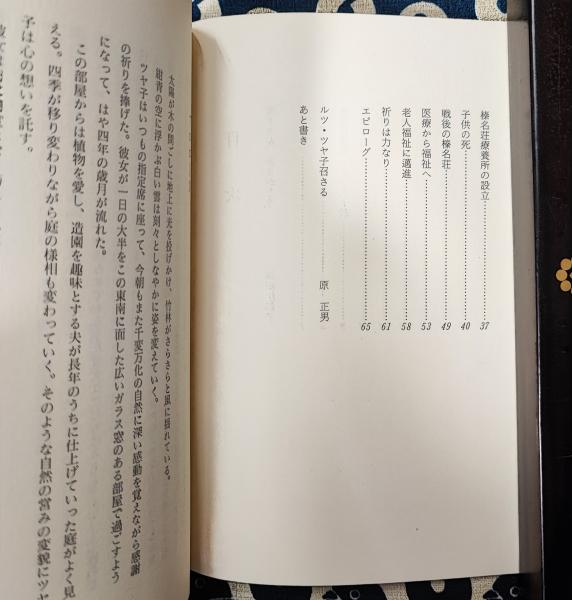 榛名荘療養所の設立……37
子供の死……40
戦後の榛名荘……49
医療から福祉へ……53
老人福祉に邁進……58
祈りは力なり……61
エピローグ……65
ルツ・ツヤ子召さる……原 正男
あと書き……
太陽が木の間ごしに地上に光を投げかけ、竹林がさらさらと風に揺れている。
紺青の空に浮かぶ白い雲は刻々としなやかに姿を変えていく。
ツヤ子はいつもの指定席に座って、今朝もまた千変万化の自然に深い感動を覚えながら感謝
の祈りを捧げた。彼女が一日の大半をこの東南に面した広いガラス窓のある部屋で過ごすよう
になって、はや四年の歳月が流れた。
この部屋からは植物を愛し、造園を趣味とする夫が長年のうちに仕上げていった庭がよく見
える。四季が移り変わりながら庭の様相も変わっていく。そのような自然の営みの変貌にツヤ
子は心の想いを託す。